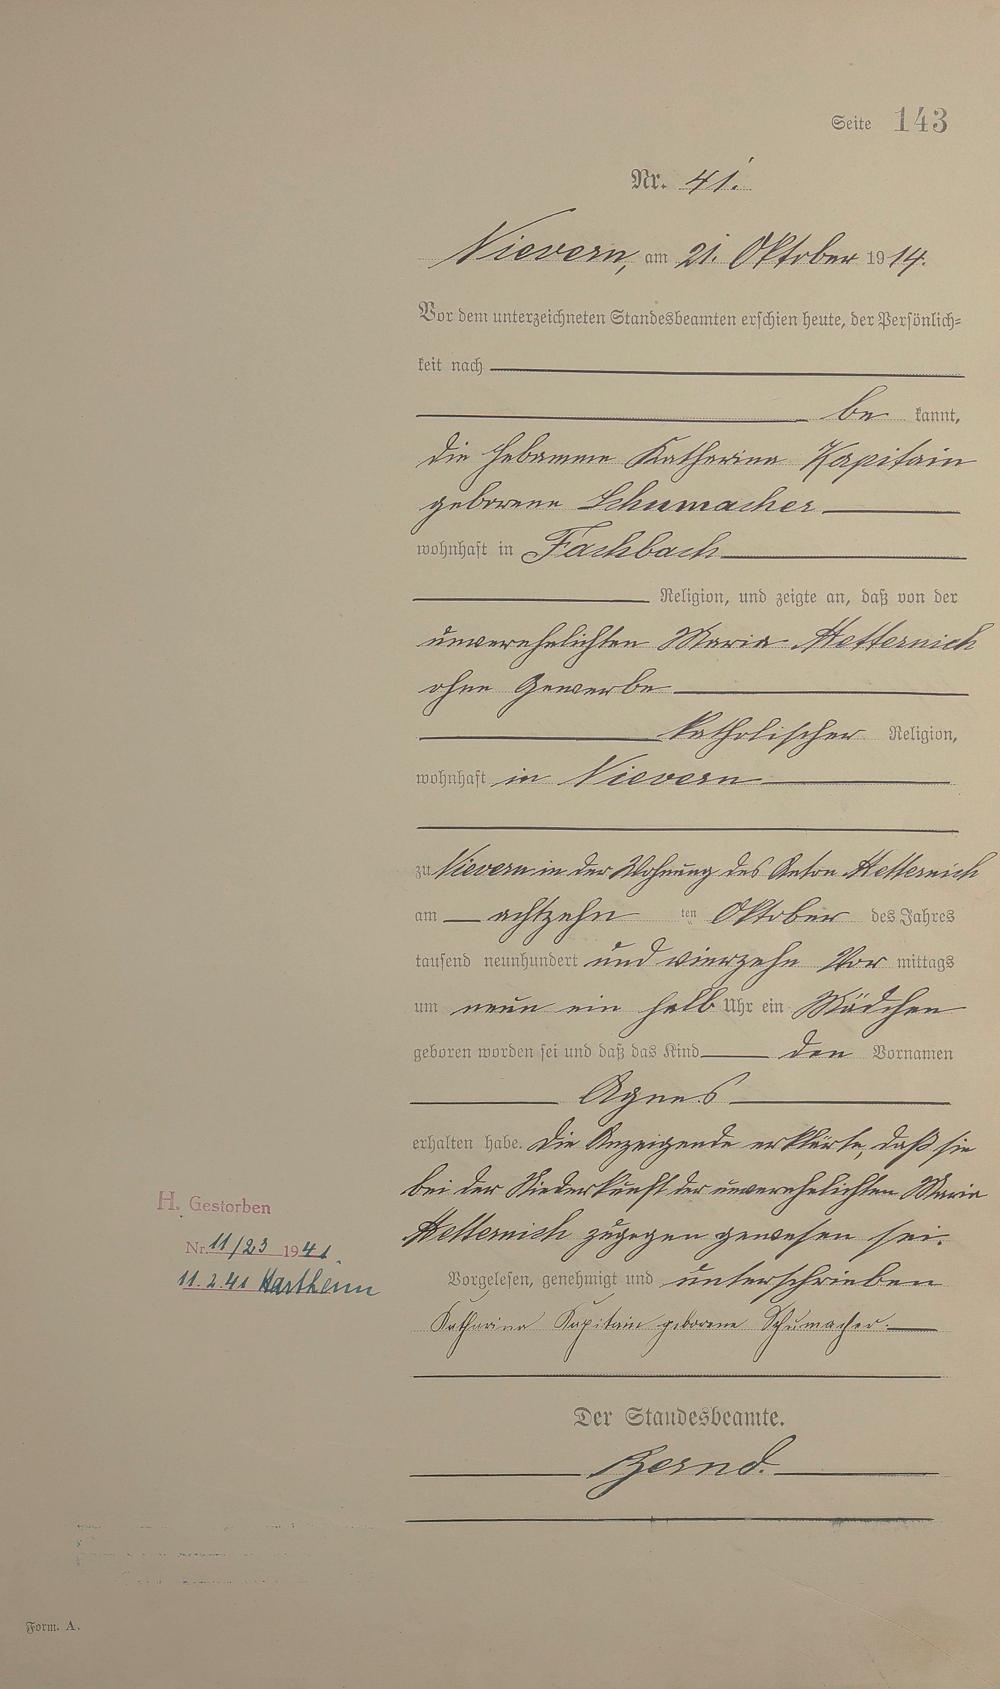 Seite 143
Nr. 41.
Nievern, am 21. Oktober 1914.
Vor dem unterzeichneten Standesbeamten erschien heute, der Persönlich-
keit nach
be kannt,
die Hebamme Katharina Kapitain
geborene Schumacher
wohnhaft in Fachbach
Religion, und zeigte an, daß von der
unverehelichten Maria Hetternich
ohne Gewerbe
katholischer Religion,
wohnhaft in Nievern
zu Nievern in der Wohnung des Anton Hetternich
am achtzehn ten Oktober des Jahres
tausend neunhundert und vierzehn Vor mittags
um neun ein halb Uhr ein Mädchen
geboren worden sei und daß das Kind den Vornamen
Agnes
erhalten habe. Die Anzeigende erklärte, daß sie
bei der Niederkunft der unverehelichten Maria
Hetternich zugegen gewesen sei.
Vorgelesen, genehmigt und unterschrieben
Katharina Kapitain geborene Schumacher.
Der Standesbeamte.
H. Gestorben
Nr. 11/23 1941.
11.2.41 Hartheim
Form. A.